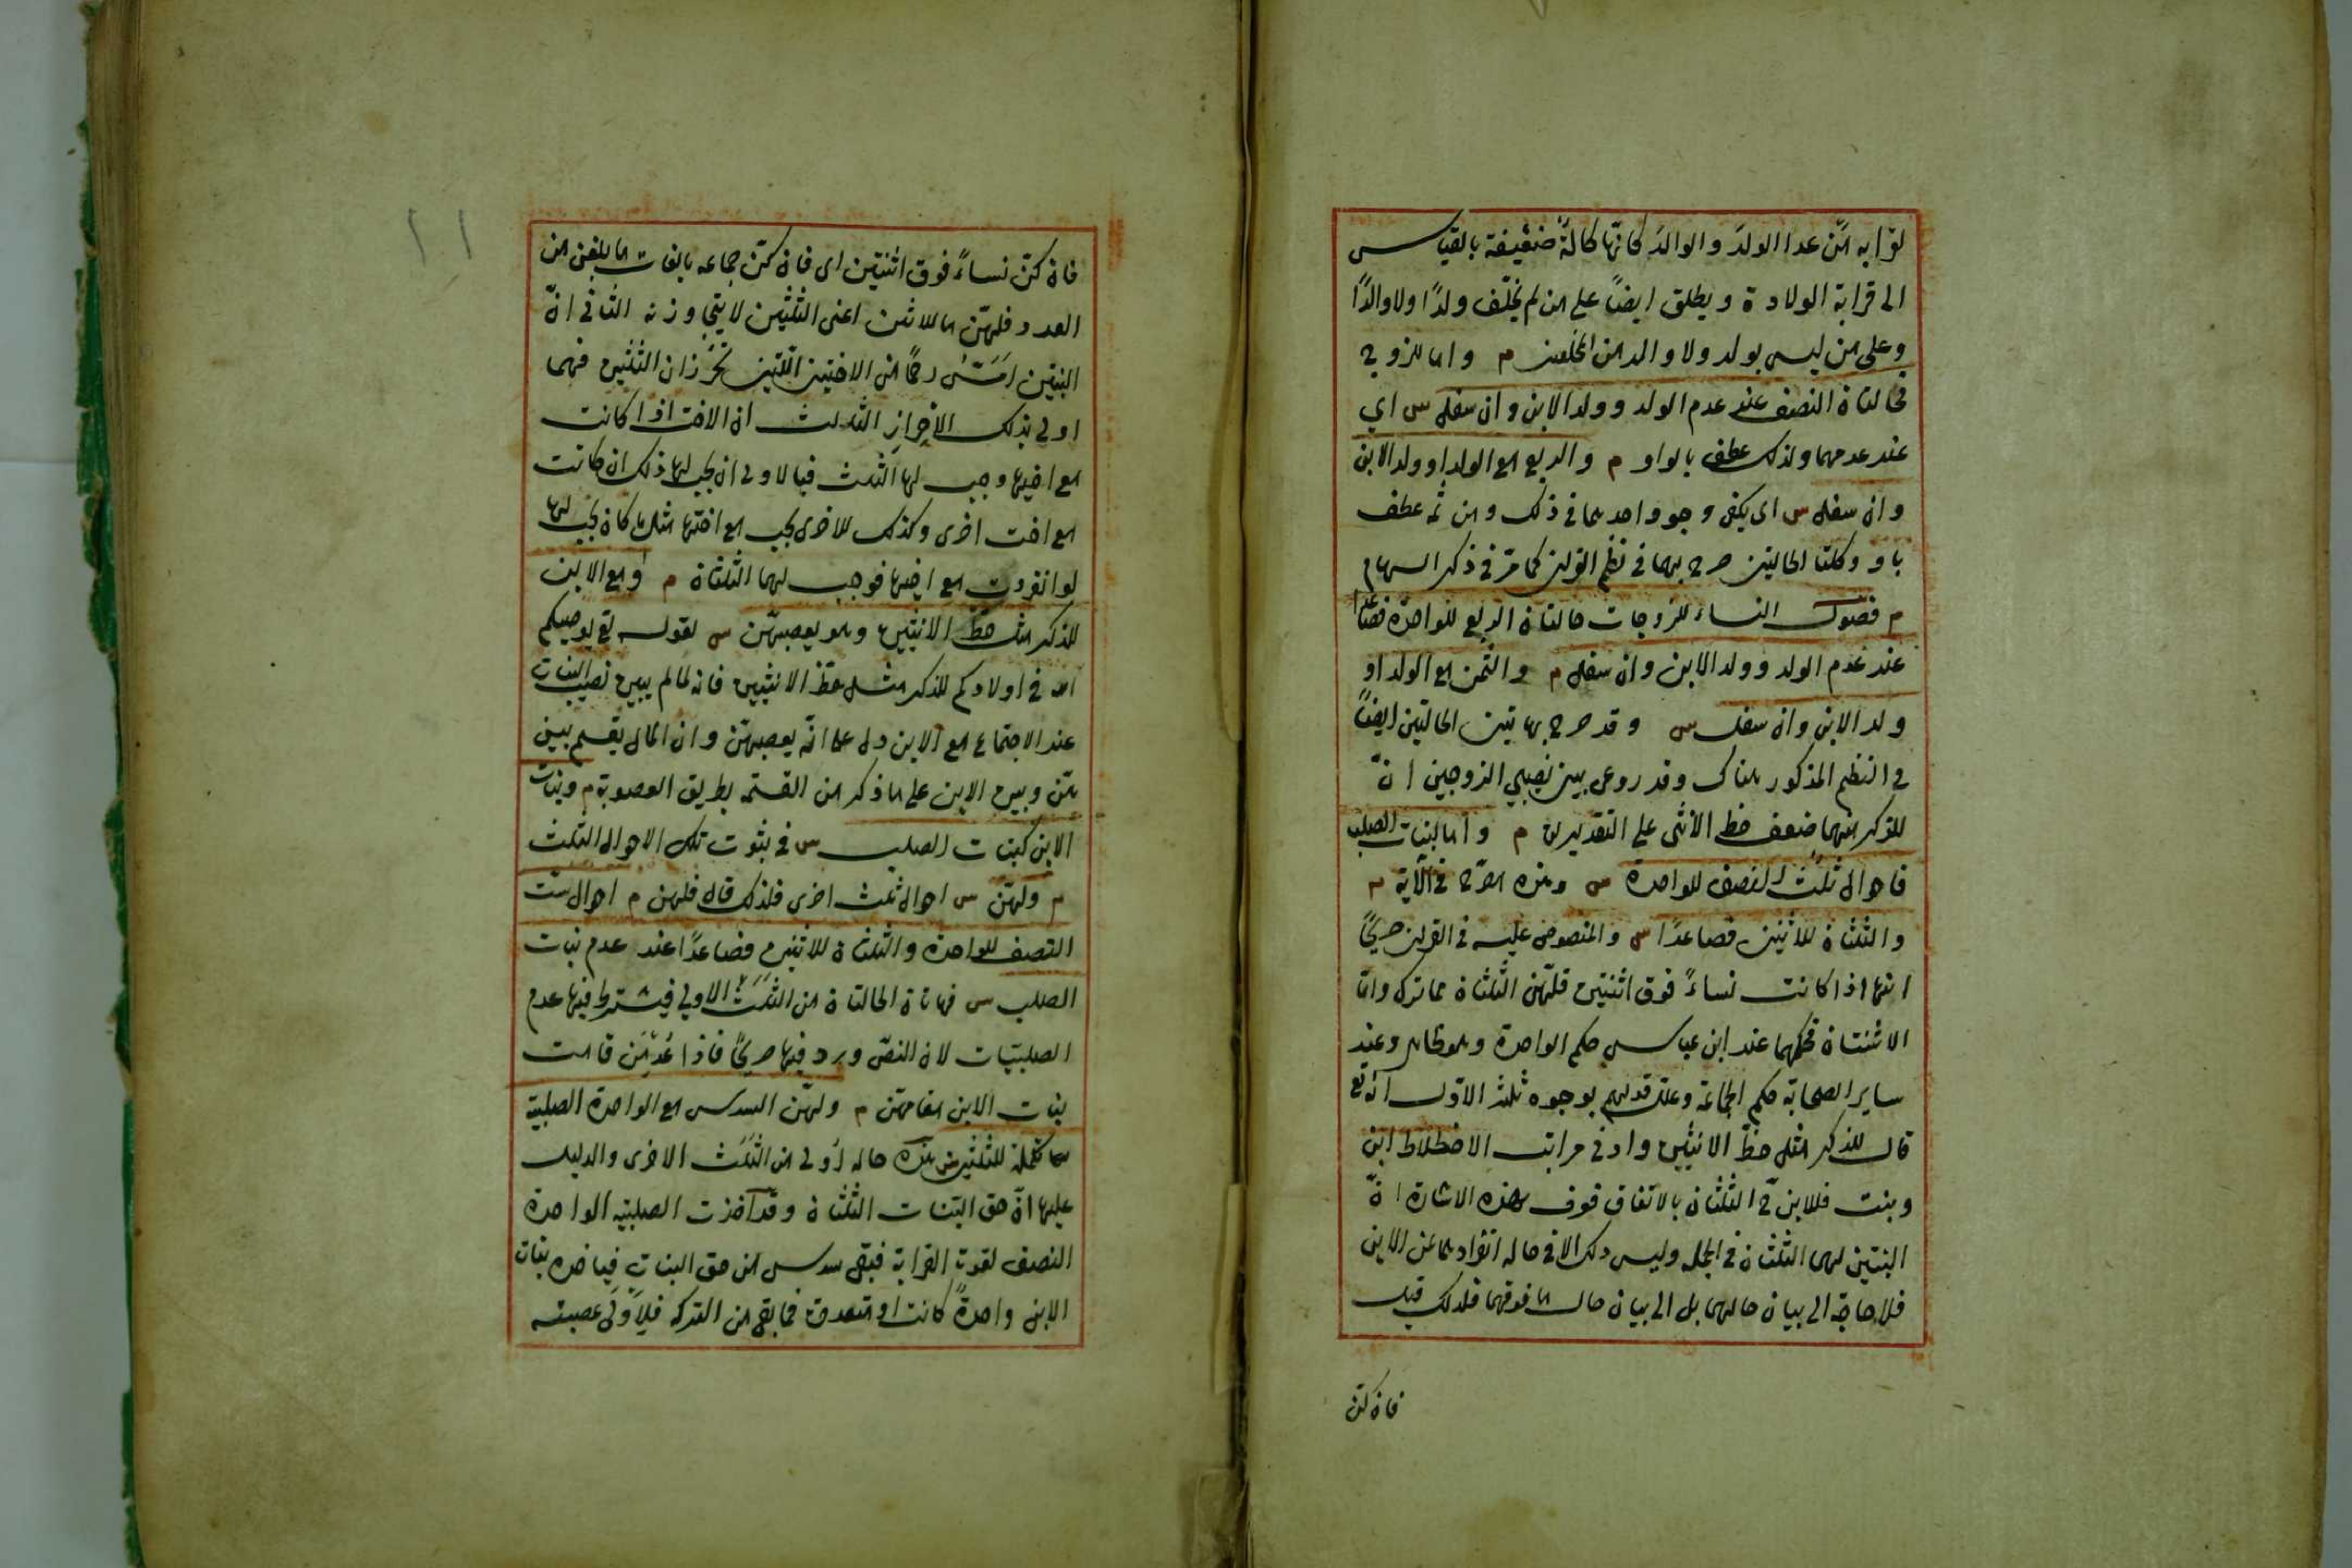 لقرابه مَن عدا الولدَ والوالدَ كانّها كالةٌ ضعيفة بالقياس
الى قرابة الولادة ويطلق ايضاً على من لم يخلّف ولدًا ولا والدًا
وعلى من ليس بولد ولا والد من المخلفين م واما للزوج
فحالتان النصف عند عدم الولد وولد الابن وان سفل س اي
عند عدمهما ولذلك عطف بالواو م والربع مع الولد او ولد الابن
وان سفل س اى يكفى وجود احدهما فى ذلك ومن ثمه عطف
باو وكلتا الحالتين صرح بهما فى نظم القران كما مرّ فى ذكر السهام
م فصول النساء للزوجات حالتان الربع للواحدة فصاعدا
عند عدم الولد وولد الابن وان سفل م والثمن مع الولد او
ولد الابن وان سفل س وقد صرح بهاتين الحالتين ايضاً
فى النظم المذكور هناك وقد روعى بين نصيبي الزوجين انّ
للذكر منهما ضعف حظ الانثى على التقديرين م واما لبنات الصلب
فاحوال ثلث النصف للواحدة س وهذه مصرح فى الآية م
والثلثان للاثنين فصاعدًا س والمنصوص عليه فى القران صريحًا
انها اذا كانت نساءً فوق اثنتين فلهن الثلثان مما ترك وامّا
الاثنتان فحكمهما عند ابن عباس حكم الواحدة وهو ظاهر وعند
ساير الصحابة حكم الجماعة وعلل قولهم بوجوه ثلثة الاول انه تع
قال للذكر مثل حظّ الانثيين وادنى مراتب الاختلاط ابن
وبنت فللابن ح الثلثان بالاتفاق فعرف بهذه الاشارة انّ
البنتين لهما الثلثان فى الجمله وليس ذلك الا فى حاله انفرادهما عن الابن
فلا حاجة الى بيان حالهما بل الى بيان حال ما فوقهما فلذلك قيل
فان كنّ
فان كنّ نساءً فوق اثنتين اى فان كنّ جماعه بالغات ما بلغن من
العدد فلهنّ ما للاثنتين اعنى الثلثين لا يتجاوزنه الثانى انّ
البنتين امَسّ رحمًا من الاختين اللتين تحرزان الثلثين فهما
اولى بذلك الاحراز الثالث ان الاخت اذا كانت
مع اخيها وجب لها الثلث فبالاولى ان يجب لها ذلك ان كانت
مع اخت اخرى وكذلك للاخرى يجب مع اختها مثل ما كان يجب لها
لو انفردت مع اخيها فوجب لهما الثلثان م ومع الابن
للذكر مثل حظ الانثيين وهو يعصبهنّ س لقوله تع يوصيكم
الله فى اولادكم للذكر مثل حظ الانثيين فانه لما لم يبين نصيب البنات
عند الاجتماع مع الابن دل على انّه يعصبهنّ وان المال يقسم بين
هنّ وبين الابن على ما ذكر من القسمة بطريق العصوبة م وبنات
الابن كبنات الصلب س فى ثبوت تلك الاحوال الثلث
م ولهنّ س احوال ثلث اخرى فلذلك قال فلهن م احوال ست
النصف للواحدة والثلثان للاثنين فصاعدًا عند عدم بنات
الصلب س فهاتان الحالتان من الثلث الاولى فيشترط فيها عدم
الصلبيّات لان النصّ ورد فيها صريحًا فاذا عُدِمْنَ قامت
بنات الابن مقامهنّ م ولهنّ السدس مع الواحدة الصلبية
تكملة للثلثين س هذه حاله اولى من الثلث الاخرى والدليل
عليها انّ حق البنات الثلثان وقد اخذت الصلبيه الواحدة
النصف لقوة القرابة فبقى سدس من حق البنات فياخذه بنات
الابن واحدةً كانت او متعددة فما بقى من التركه فلاولى عصبته
١١